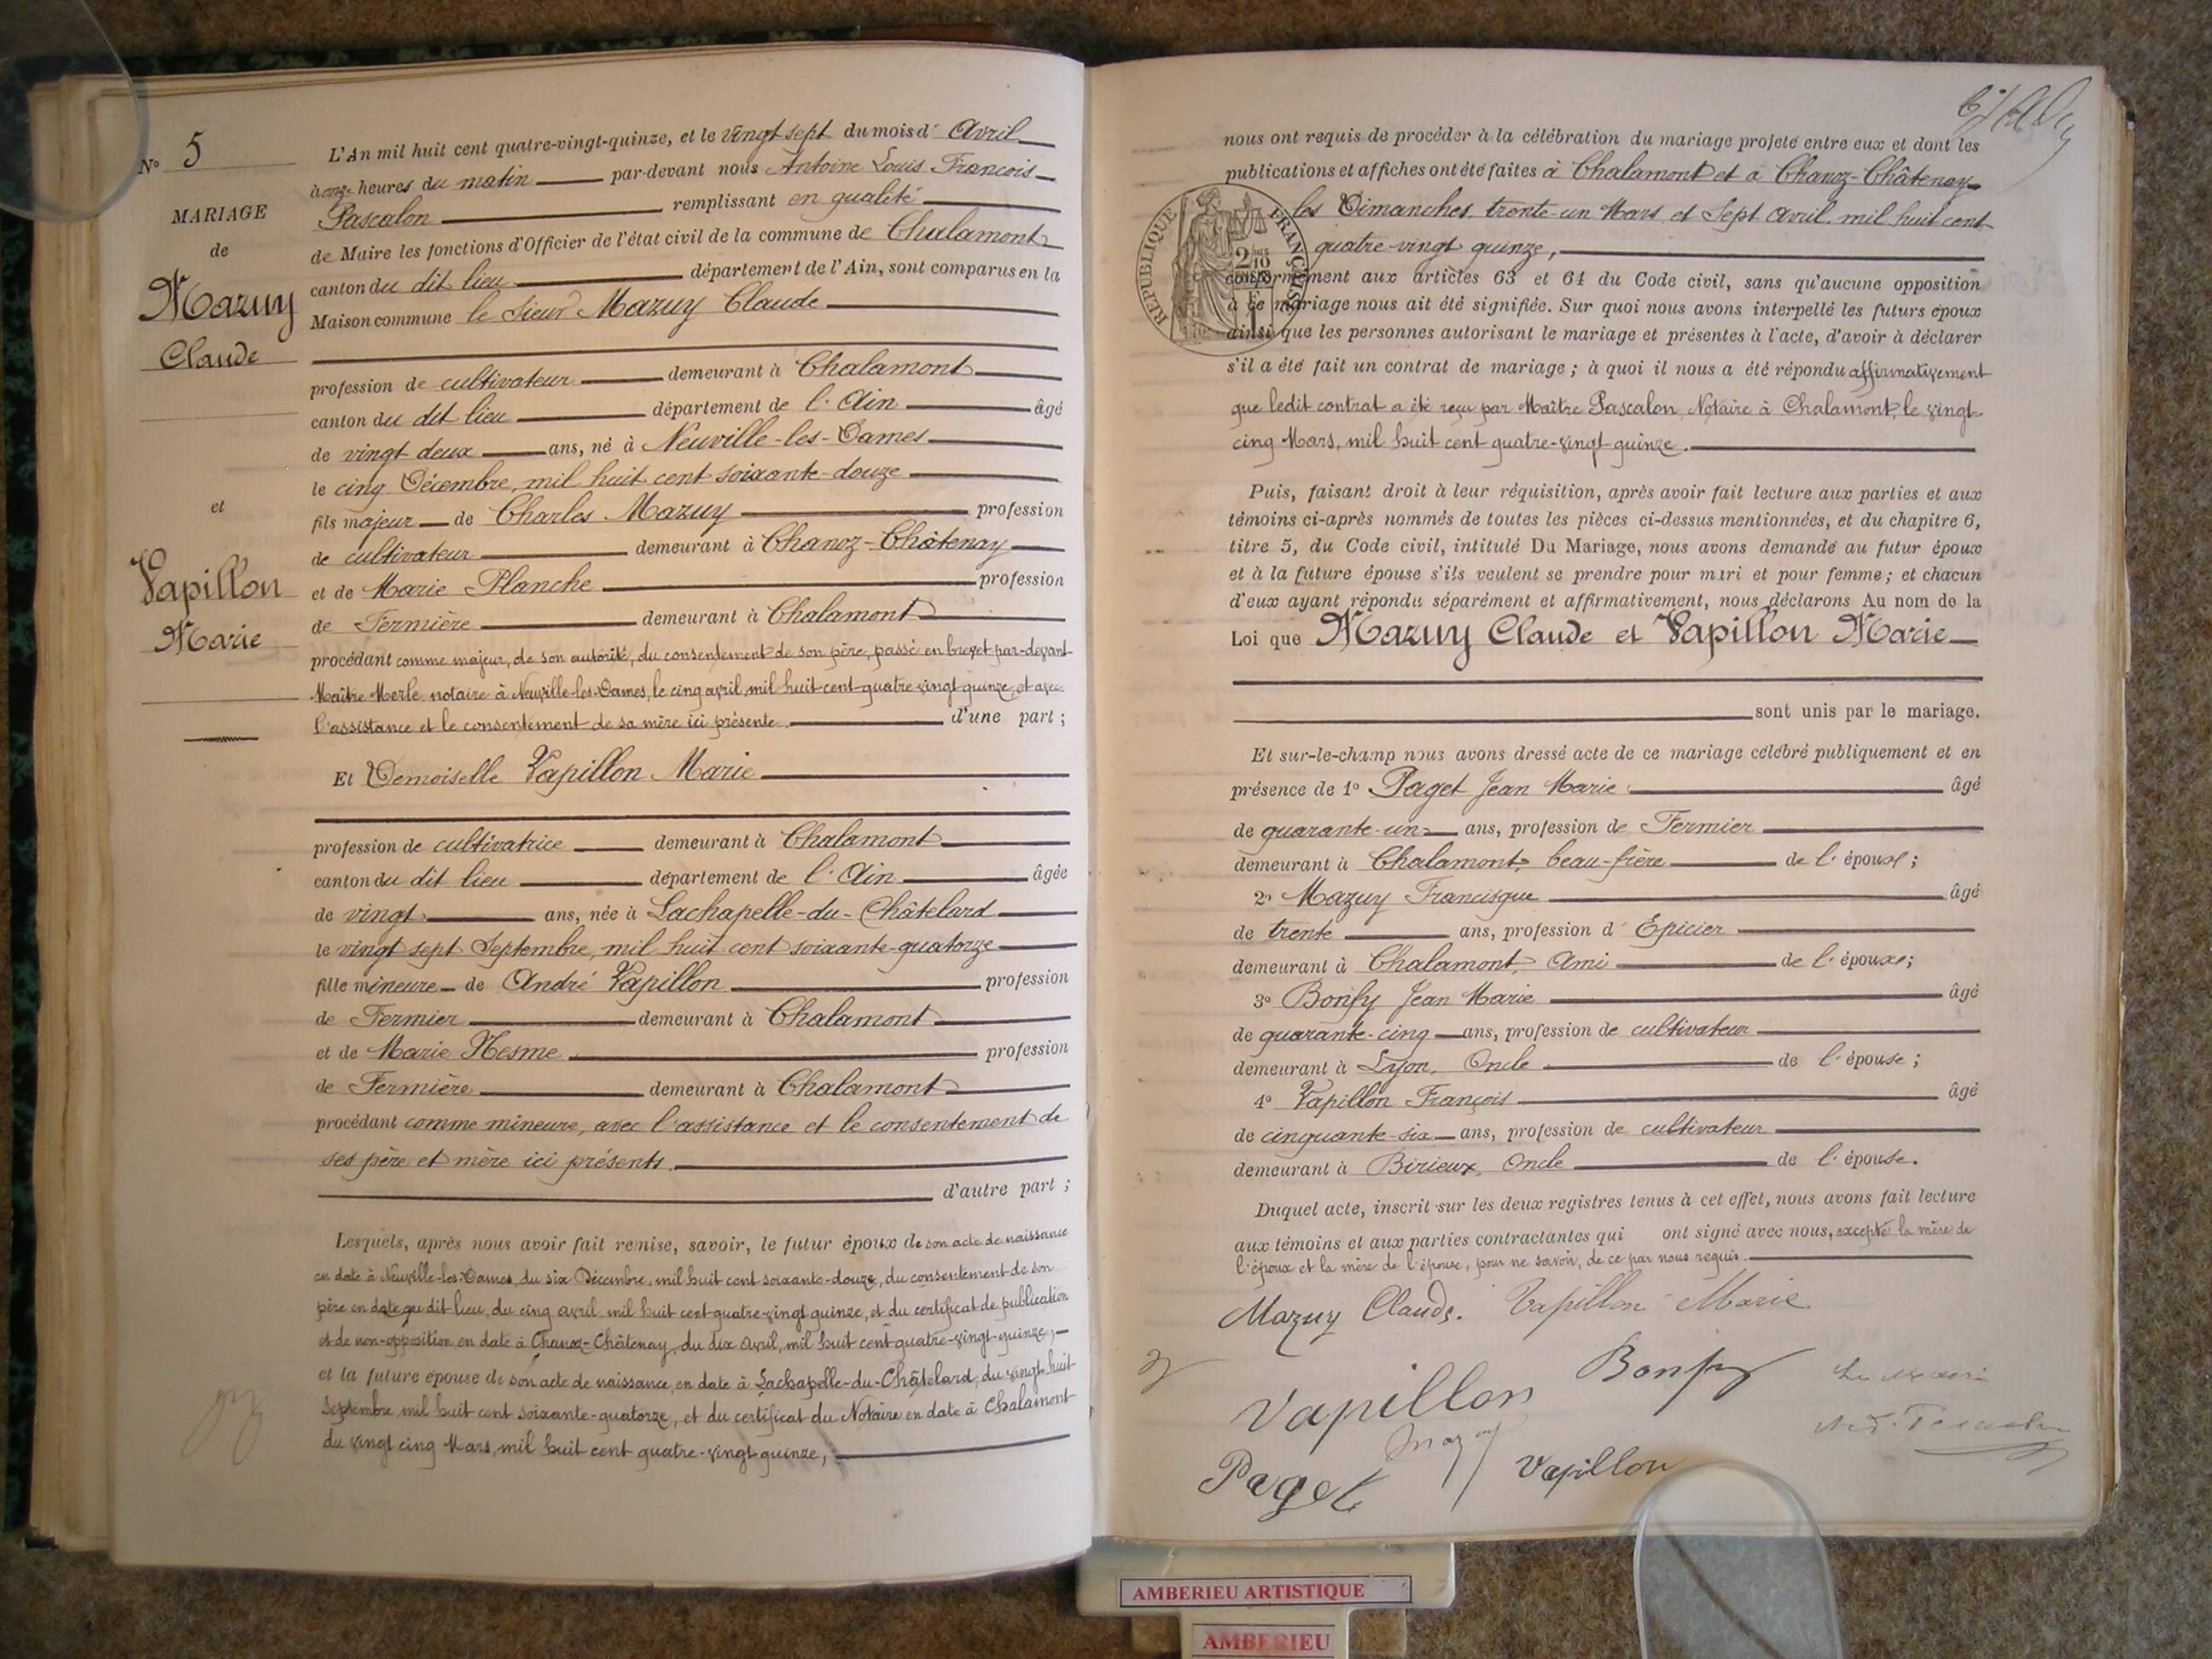 N° 5
MARIAGE
de
Mazuy
Claude
et
Vapillon
Marie
L'An mil huit cent quatre-vingt-quinze, et le vingt sept du mois d' Avril
à onze heures du matin par-devant nous Antoine Louis François
Pascalon remplissant en qualité
de Maire les fonctions d'Officier de l'état civil de la commune de Chalamont
canton du dit lieu département de l'Ain, sont comparus en la
Maison commune le Sieur Mazuy Claude
profession de cultivateur demeurant à Chalamont
canton du dit lieu département de l'Ain âgé
de vingt deux ans, né à Neuville-les-Dames
le cinq Décembre, mil huit cent soixante-douze
fils majeur de Charles Mazuy profession
de cultivateur demeurant à Chanoz-Châtenay
et de Marie Planche profession
de Fermière demeurant à Chalamont
procédant comme majeur, de son autorité, du consentement de son père, passé en brevet par-devant
Maître Merle notaire à Neuville-les-Dames, le cinq avril, mil huit-cent-quatre vingt quinze, et avec
l'assistance et le consentement de sa mère ici présente. d'une part ;
Et Demoiselle Vapillon Marie
profession de cultivatrice demeurant à Chalamont
canton du dit lieu département de l'Ain âgée
de vingt ans, née à Lachapelle-du-Châtelard
le vingt sept Septembre, mil huit cent soixante-quatorze
fille mineure de André Vapillon profession
de Fermier demeurant à Chalamont
et de Marie Nesme profession
de Fermière demeurant à Chalamont
procédant comme mineure, avec l'assistance et le consentement de
ses père et mère ici présents.
d'autre part ;
Lesquels, après nous avoir fait remise, savoir, le futur époux de son acte de naissance
en date à Neuville-les-Dames, du six Décembre, mil huit cent soixante-douze, du consentement de son
père en date au dit lieu, du cinq avril, mil huit cent quatre-vingt quinze, et du certificat de publication
et de non-opposition en date à Chanoz-Châtenay, du dix Avril, mil huit cent quatre-vingt-quinze,
et la future épouse de son acte de naissance, en date à Lachapelle-du-Châtelard, du vingt-huit
Septembre, mil huit cent soixante-quatorze, et du certificat du Notaire en date à Chalamont
du vingt cinq Mars, mil huit cent quatre-vingt quinze,
nous ont requis de procéder à la célébration du mariage projeté entre eux et dont les
publications et affiches ont été faites à Chalamont et à Chanoz-Châtenay
les Dimanches, trente-un Mars et Sept avril, mil huit cent
quatre-vingt quinze,
RÉPUBLIQUE FRANÇAISE
conformément aux articles 63 et 64 du Code civil, sans qu'aucune opposition
à ce mariage nous ait été signifiée. Sur quoi nous avons interpellé les futurs époux
ainsi que les personnes autorisant le mariage et présentes à l'acte, d'avoir à déclarer
s'il a été fait un contrat de mariage ; à quoi il nous a été répondu affirmativement
que ledit contrat a été reçu par Maître Pascalon, Notaire à Chalamont, le vingt-
cinq Mars, mil huit cent quatre-vingt-quinze.
Puis, faisant droit à leur réquisition, après avoir fait lecture aux parties et aux
témoins ci-après nommés de toutes les pièces ci-dessus mentionnées, et du chapitre 6,
titre 5, du Code civil, intitulé Du Mariage, nous avons demandé au futur époux
et à la future épouse s'ils veulent se prendre pour mari et pour femme ; et chacun
d'eux ayant répondu séparément et affirmativement, nous déclarons Au nom de la
Loi que Mazuy Claude et Vapillon Marie
sont unis par le mariage.
Et sur-le-champ nous avons dressé acte de ce mariage célébré publiquement et en
présence de 1° Paget Jean Marie âgé
de quarante-un ans, profession de Fermier
demeurant à Chalamont, beau-frère de l'époux ;
2° Mazuy Francisque âgé
de trente ans, profession d'Epicier
demeurant à Chalamont, Ami de l'époux ;
3° Bonfy Jean Marie âgé
de quarante-cinq ans, profession de cultivateur
demeurant à Lyon, Oncle de l'épouse ;
4° Vapillon François âgé
de cinquante-six ans, profession de cultivateur
demeurant à Birieux, Oncle de l'épouse.
Duquel acte, inscrit sur les deux registres tenus à cet effet, nous avons fait lecture
aux témoins et aux parties contractantes qui ont signé avec nous, excepté la mère de
l'époux et la mère de l'épouse, pour ne savoir, de ce par nous requis.
Mazuy Claude. Vapillon Marie
Vapillon Bonfy Le Maire
Paget Mazuy Vapillon
AMBERIEU ARTISTIQUE
AMBERIEU